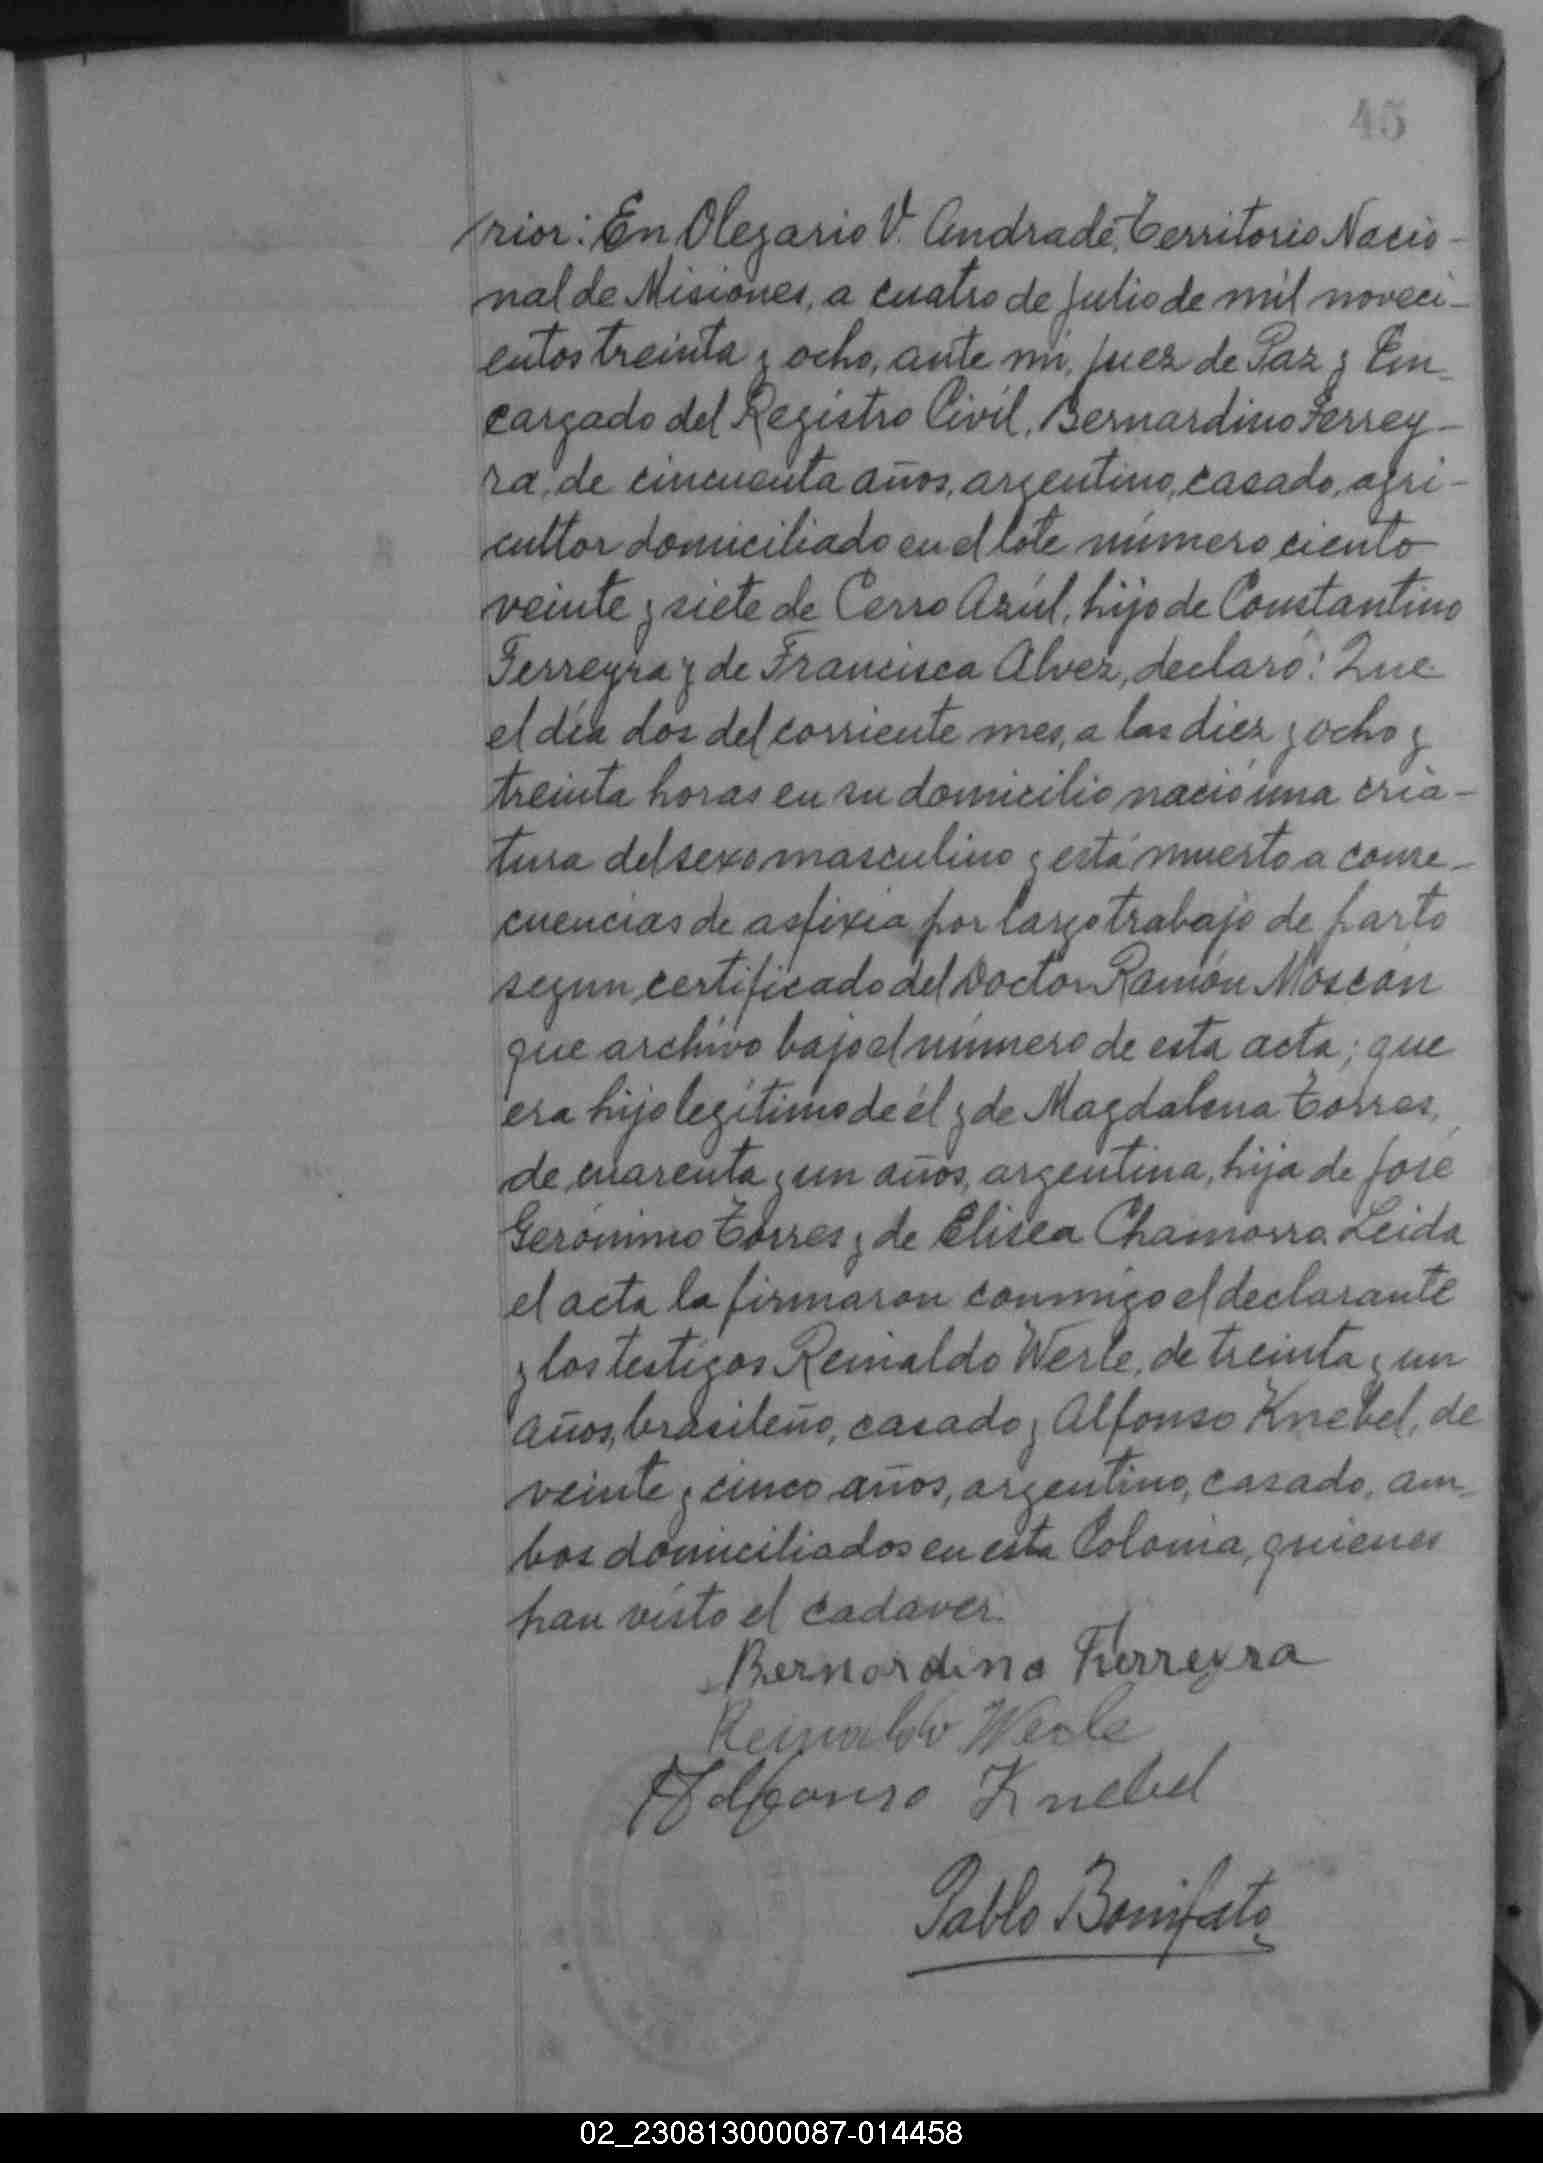 45
/rior: En Olegario V. Andrade, Territorio Nacio-
nal de Misiones, a cuatro de julio de mil noveci-
entos treinta y ocho, ante mi, Juez de Paz y En-
cargado del Registro Civil, Bernardino Ferrey-
ra, de cincuenta años, argentino, casado, agri-
cultor domiciliado en el lote número ciento
veinte y siete de Cerro Azúl, hijo de Constantino
Ferreyra y de Francisca Alvez, declaró: Que
el día dos del corriente mes, a las diez y ocho y
treinta horas en su domicilio nació una cria-
tura del sexo masculino y está muerto a conse-
cuencias de asfixia por largo trabajo de parto
segun certificado del Doctor Ramón Moscán
que archivo bajo el número de esta acta; que
era hijo legítimo de él y de Magdalena Torres,
de cuarenta y un años, argentina, hija de José
Gerónimo Torres y de Elisea Chamorro. Leida
el acta la firmaron conmigo el declarante
y los testigos Reinaldo Werle, de treinta y un
años, brasileño, casado y Alfonso Knebel, de
veinte y cinco años, argentino, casado, am-
bos domiciliados en esta Colonia, quienes
han visto el cadaver.
Bernardino Ferreyra
Reinaldo Werle
Alfonso Knebel
Pablo Bonifato
02_230813000087-014458